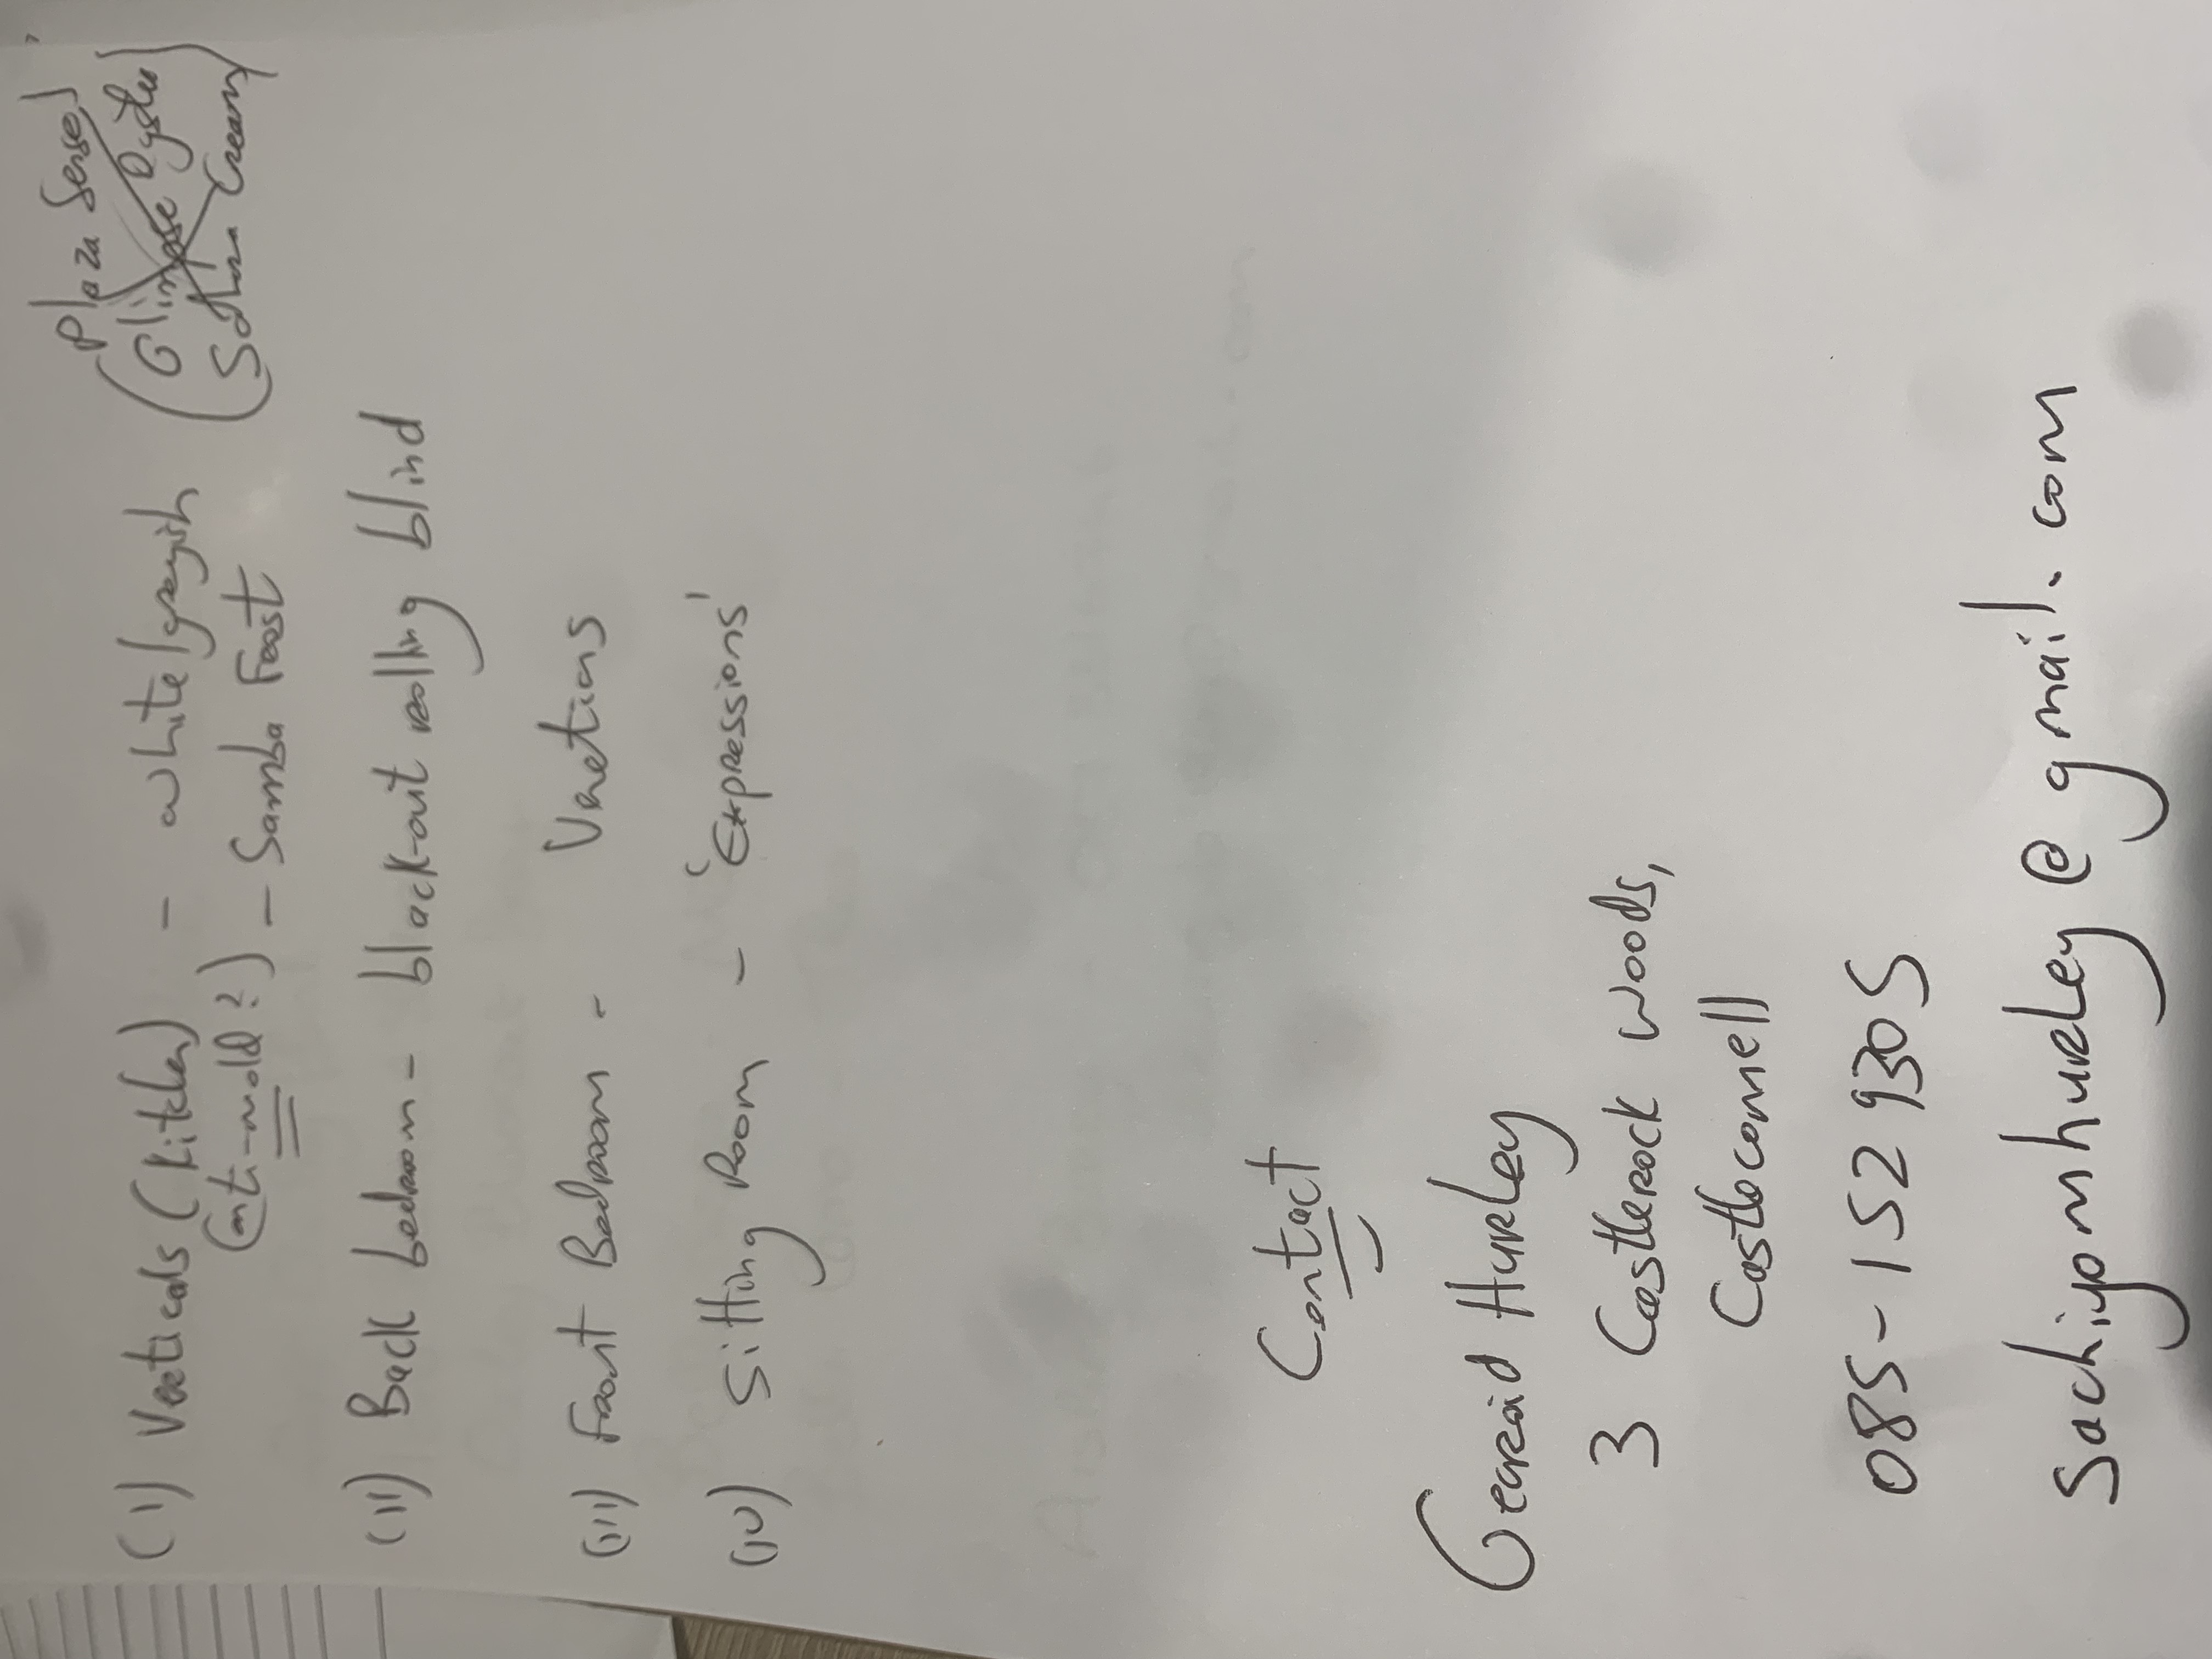 (i) Verticals (Kitchen) - white/greyish (Plaza Sense)
(anti-mold?) - Samba Frost (Glimpse Oyster)
(Sahara Cream)
(ii) Back bedroom - black-out rolling blind
(iii) Front Bedroom - Venetians
(iv) Sitting Room - 'Expressions'
Contact
Gearóid Hurley
3 Castlerock Woods,
Castleconnell
085-1529305
Sachiyomhurley@gmail.com